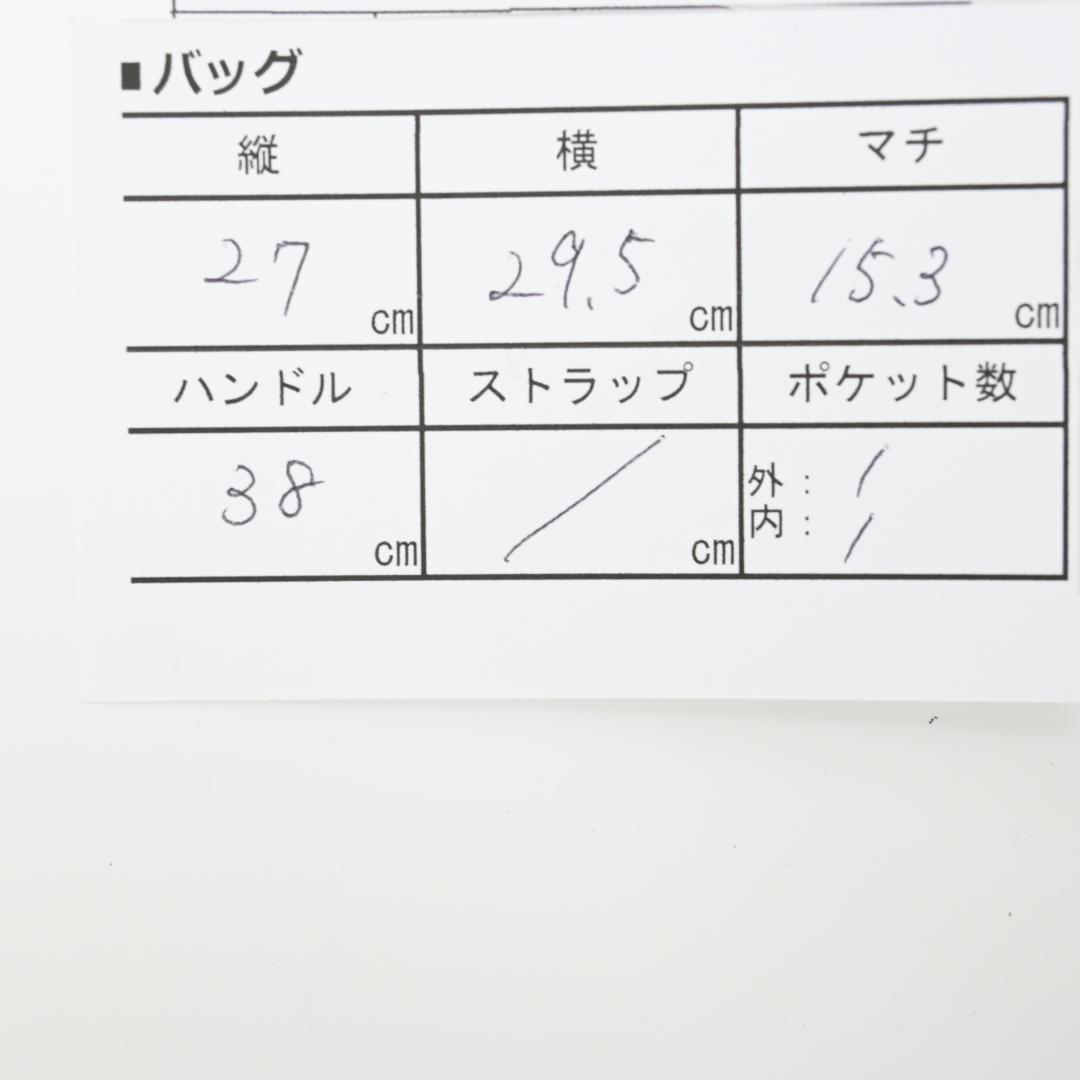 ■バッグ
縦 横 マチ
27 cm 29.5 cm 15.3 cm
ハンドル ストラップ ポケット数
38 cm / cm 外: 1
内: 1